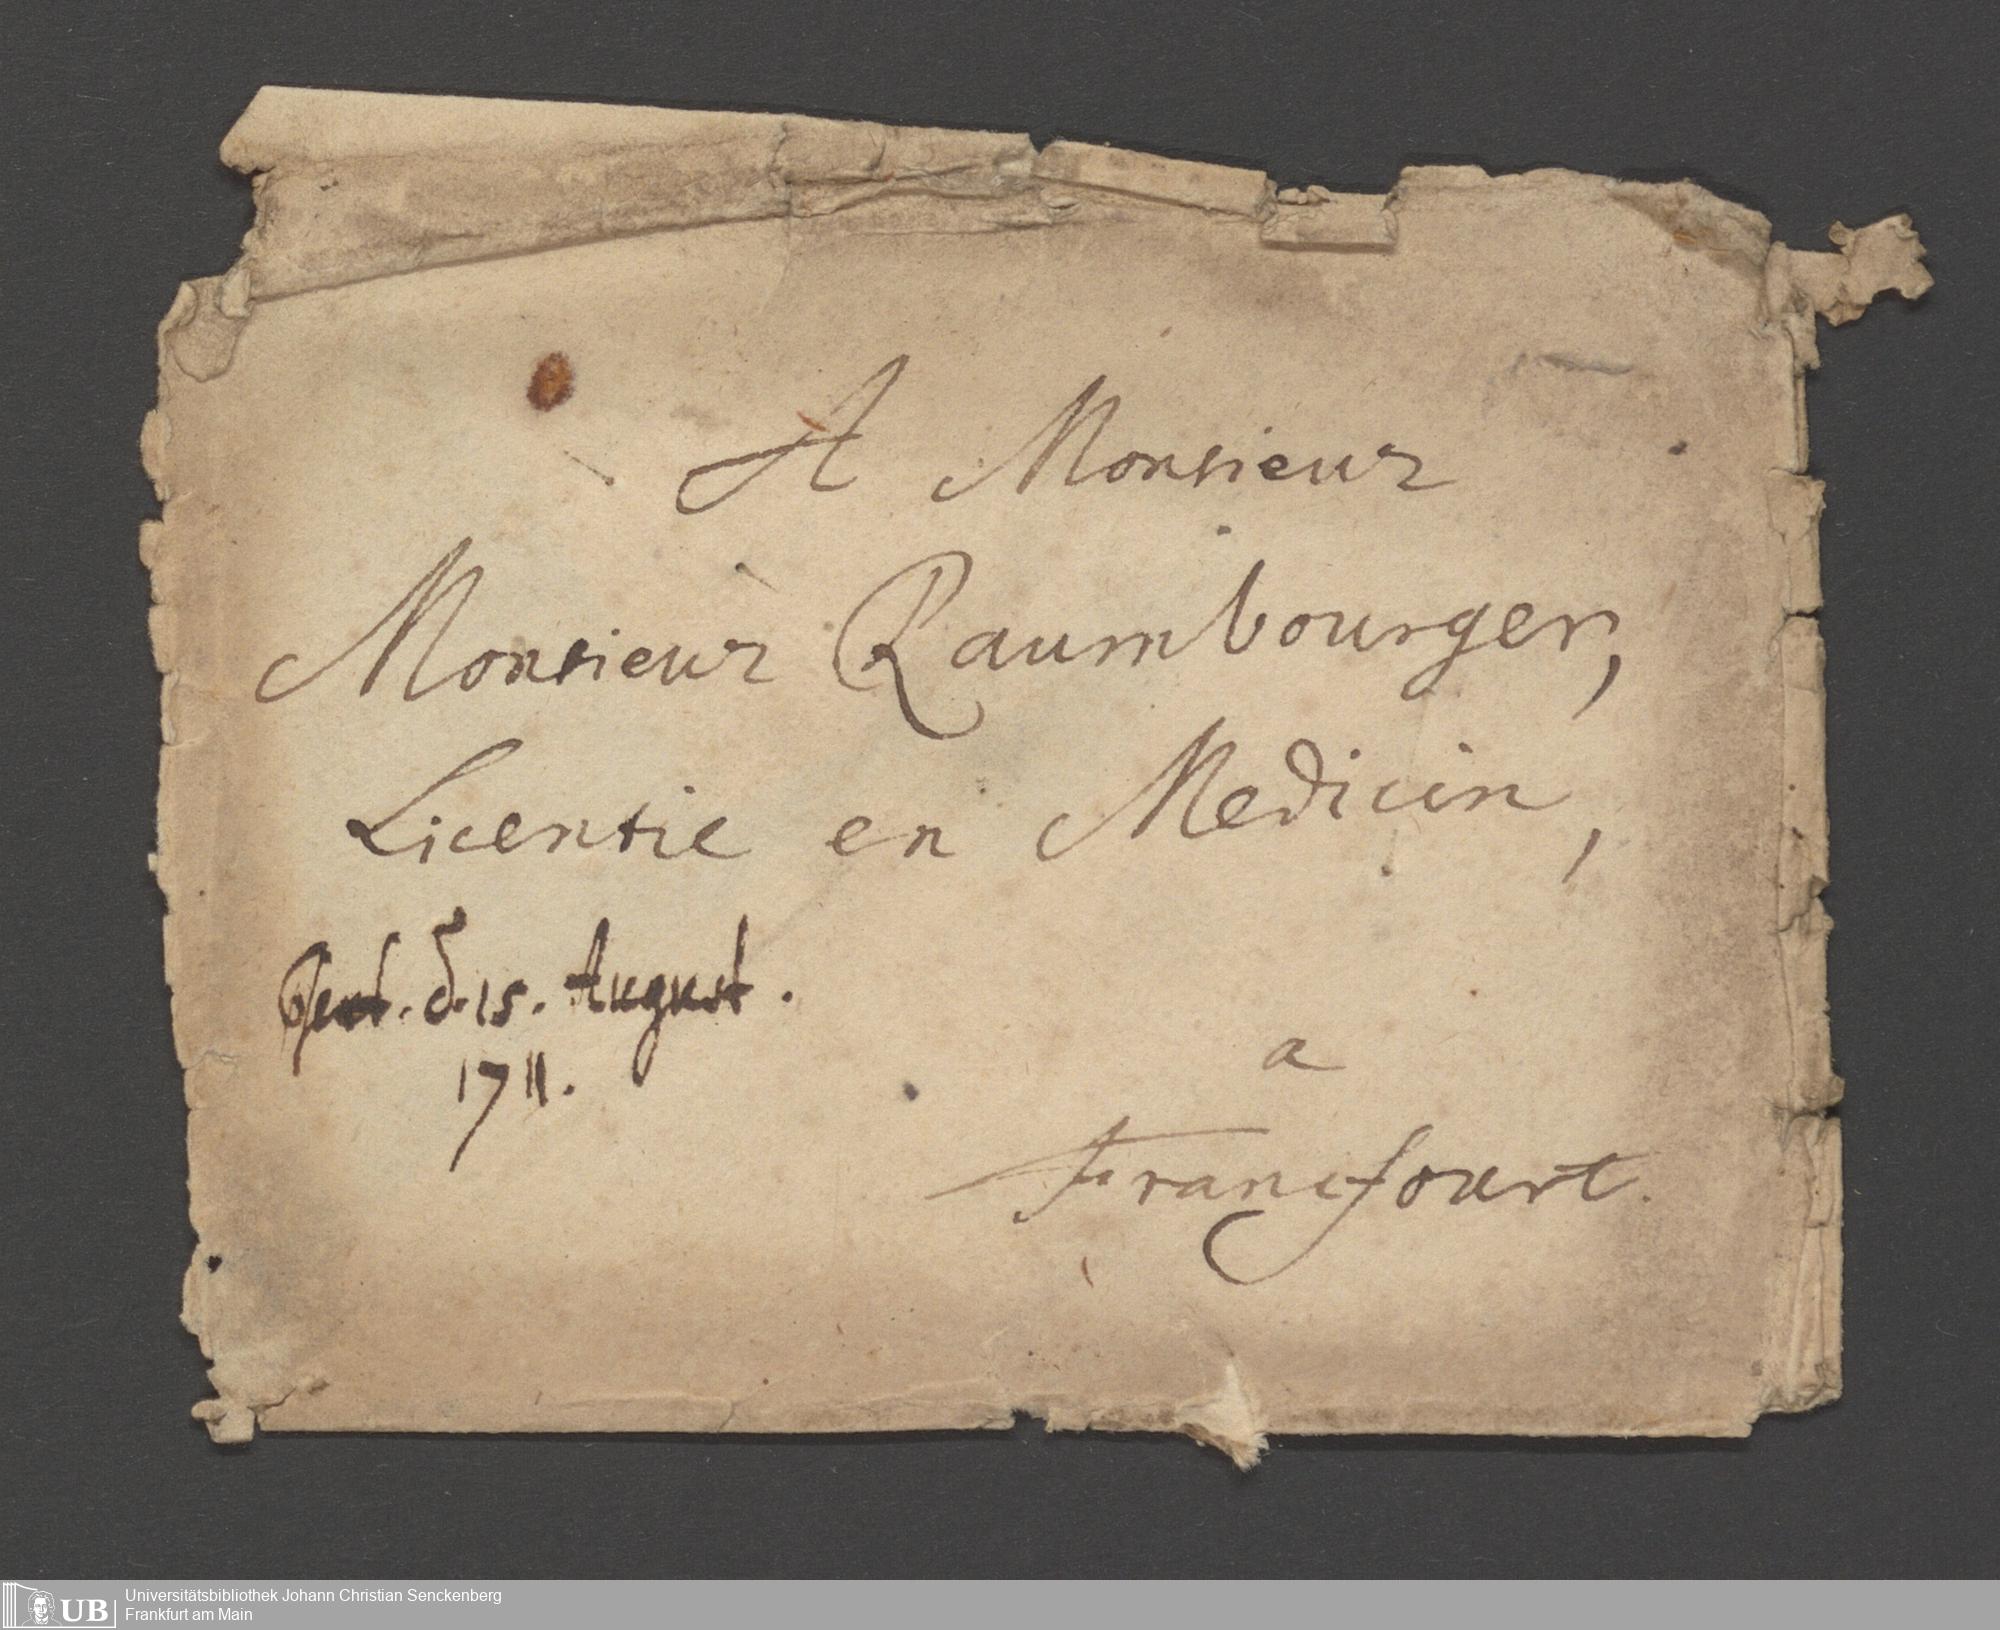 A Monsieur
Monsieur Raumbourger,
Licentie en Medicin,
d. 15. August.
1711.
a
Francfourt.
UB
Universitätsbibliothek Johann Christian Senckenberg
Frankfurt am Main